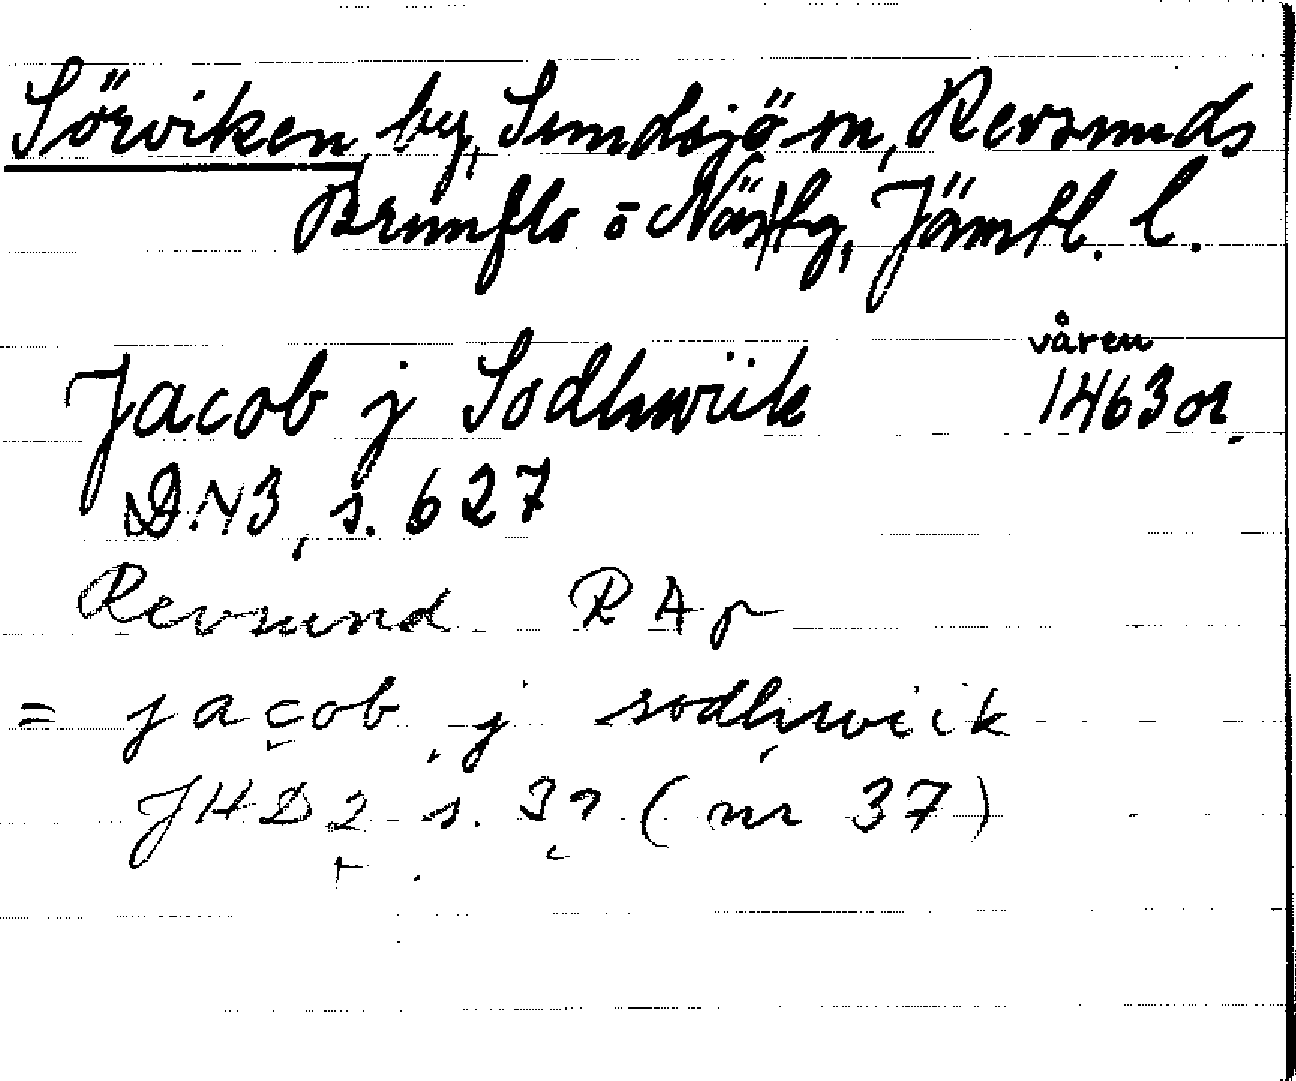 Sörviken by, Sundsjö sn, Revsunds
Brunflo o Näs tg, Jämtl. l.
våren
Jacob j Sodhwiik 1463 or.
DN3, s. 627
Revsund RAp
= jacob j sodhwiik
JHD2 s. 32 (nr 37)